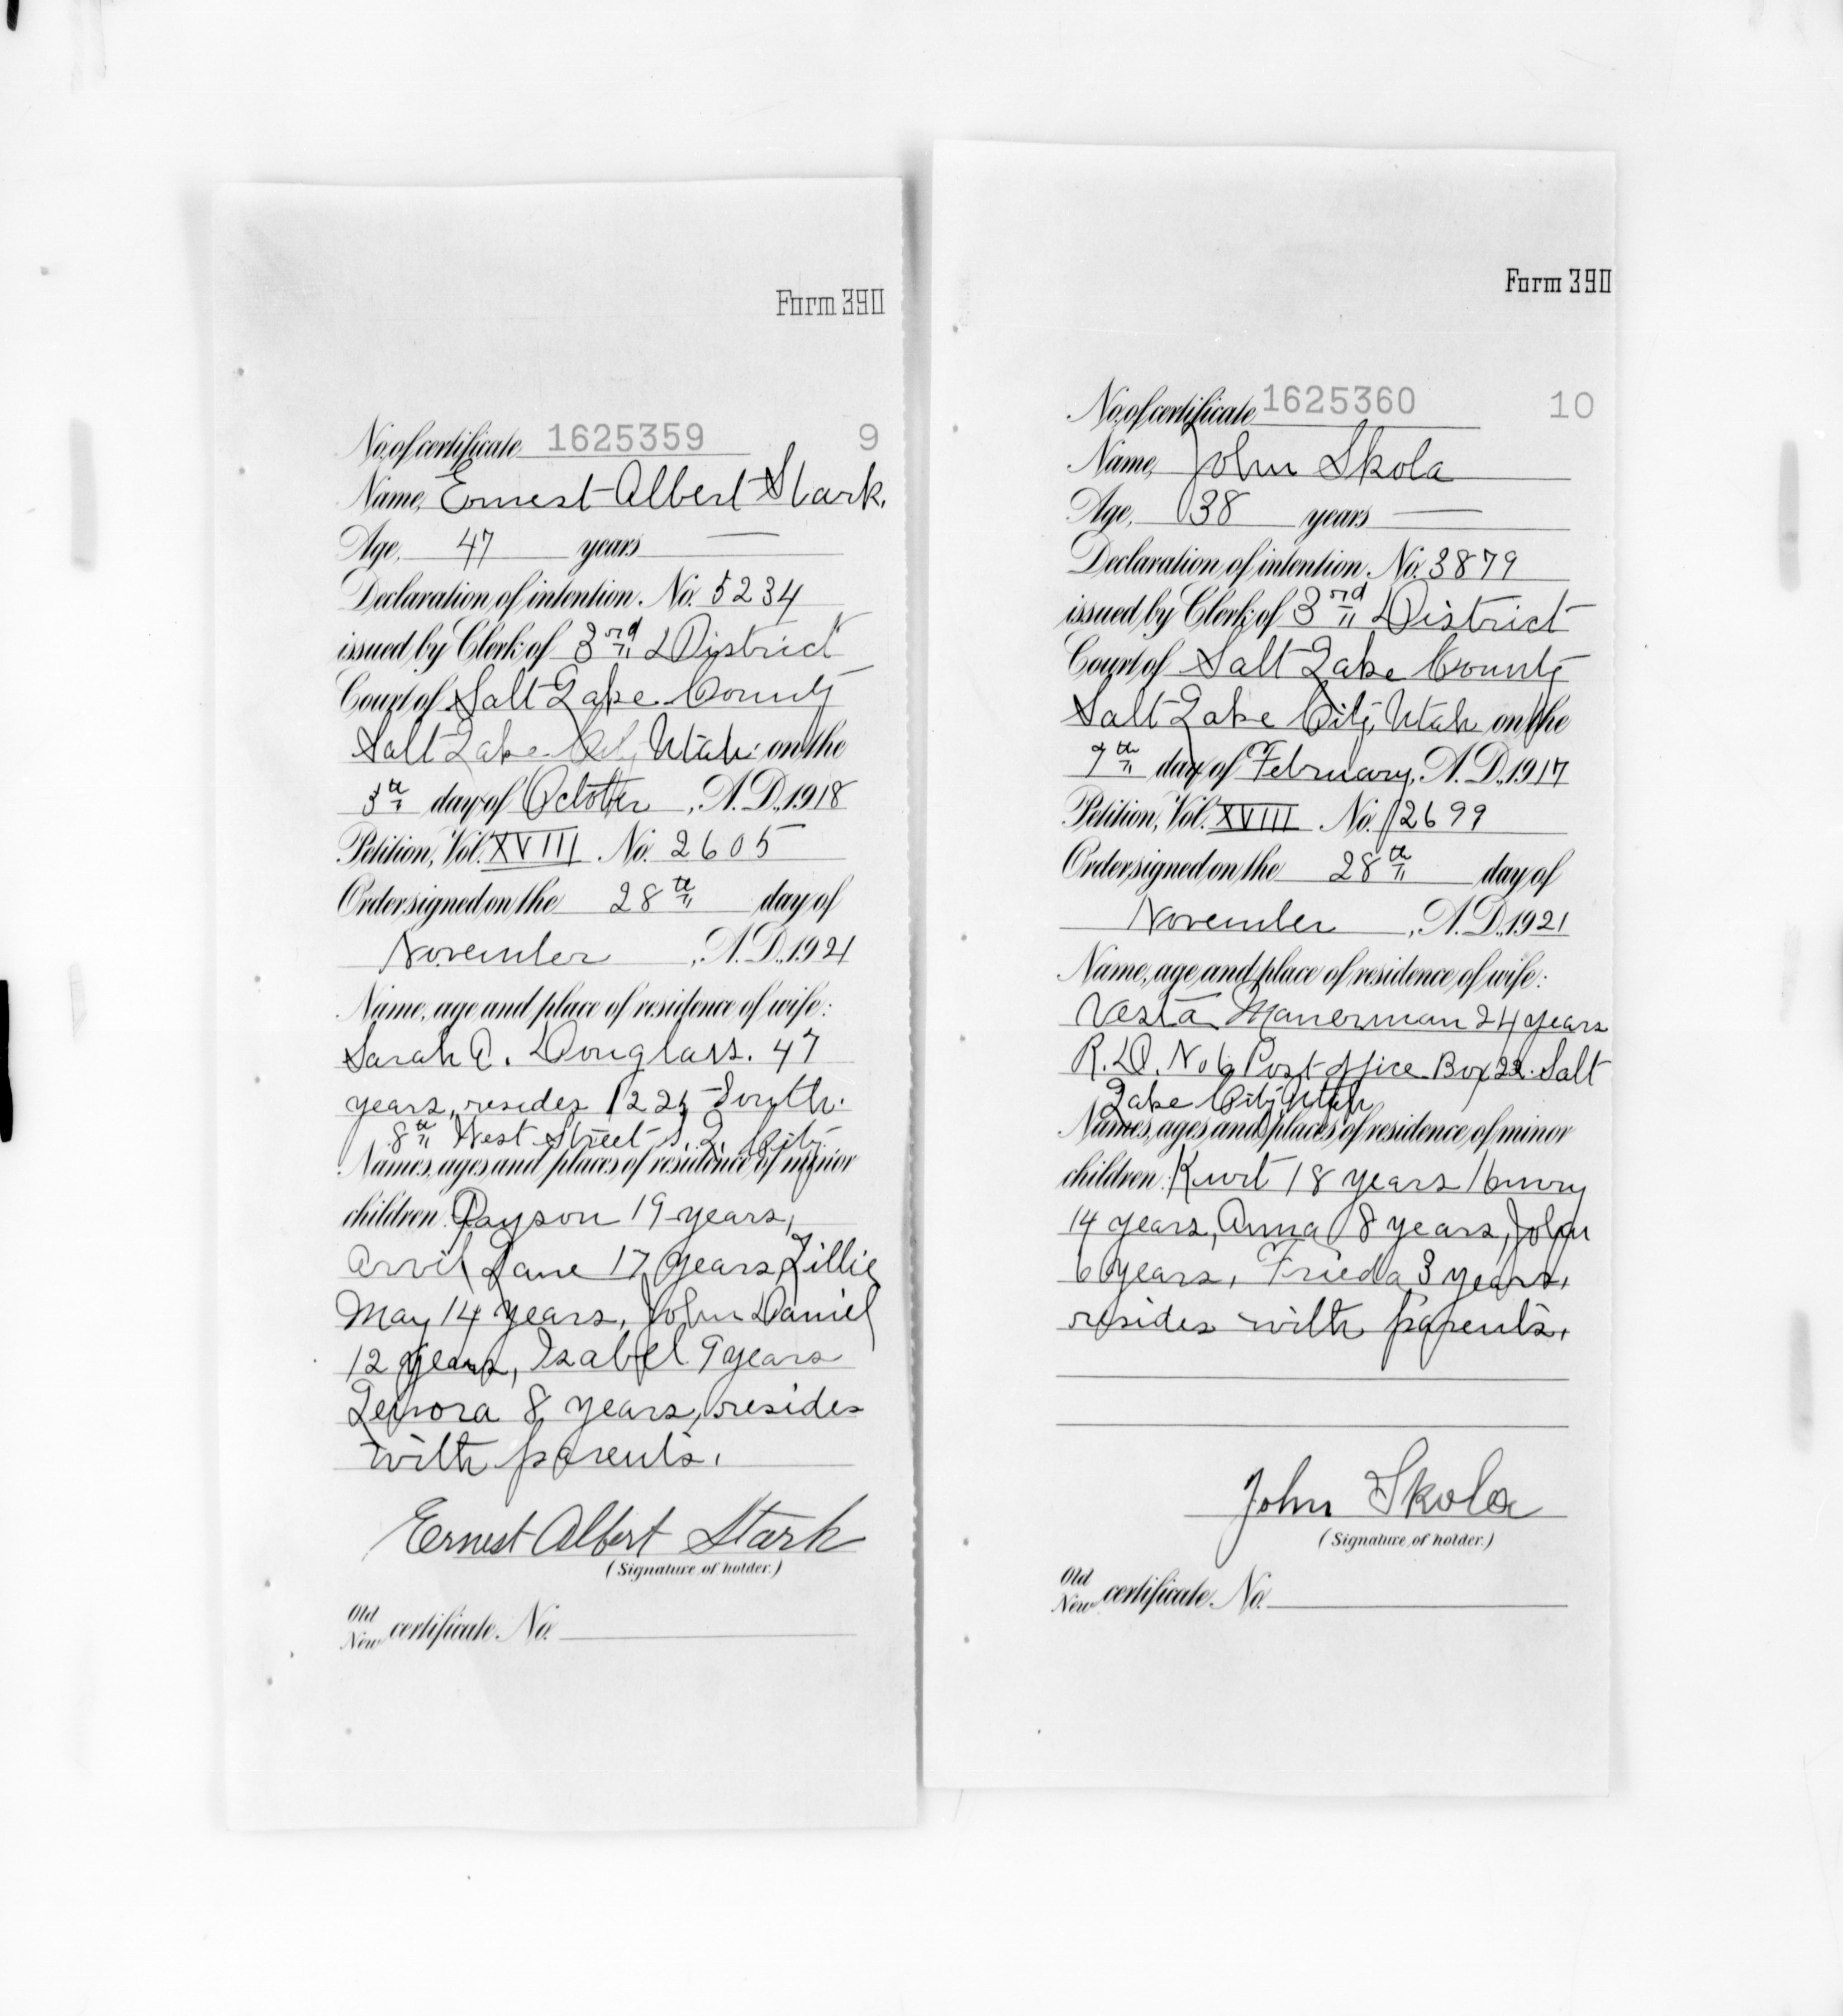 Form 390
No. of certificate 1625359 9
Name, Ernest Albert Stark.
Age, 47 years —
Declaration of intention, No. 5234
issued by Clerk of 3rd District
Court of Salt Lake County
Salt Lake City, Utah on the
3th day of October, A.D. 1918
Petition, Vol. XVIII No. 2605
Order signed on the 28th day of
November, A.D. 1921
Name, age and place of residence of wife:
Sarah A. Douglass. 47
years, resides 1225 South
8th West Street S. L. City.
Names, ages and places of residence of minor
children Payson 19 years,
Arvil Lane 17 years Lillie
May 14 years, John Daniel
12 years, Isabel 9 years
Lenora 8 years, resides
with parents.
Ernest Albert Stark
(Signature of holder.)
Old
New certificate No.
Form 390
No. of certificate 1625360 10
Name, John Skola
Age, 38 years —
Declaration of intention, No. 3879
issued by Clerk of 3rd District
Court of Salt Lake County
Salt Lake City, Utah on the
9th day of February, A.D. 1917
Petition, Vol. XVIII No. 2699
Order signed on the 28th day of
November, A.D. 1921
Name, age and place of residence of wife:
Vesta 24 years
R.D. No 6 Post office Box 22. Salt
Lake City, Utah
Names, ages and places of residence of minor
children Kurt 18 years Henry
14 years, Anna 8 years, John
6 years, Frieda 3 years,
resides with parents.
John Skola
(Signature of holder.)
Old
New certificate No.